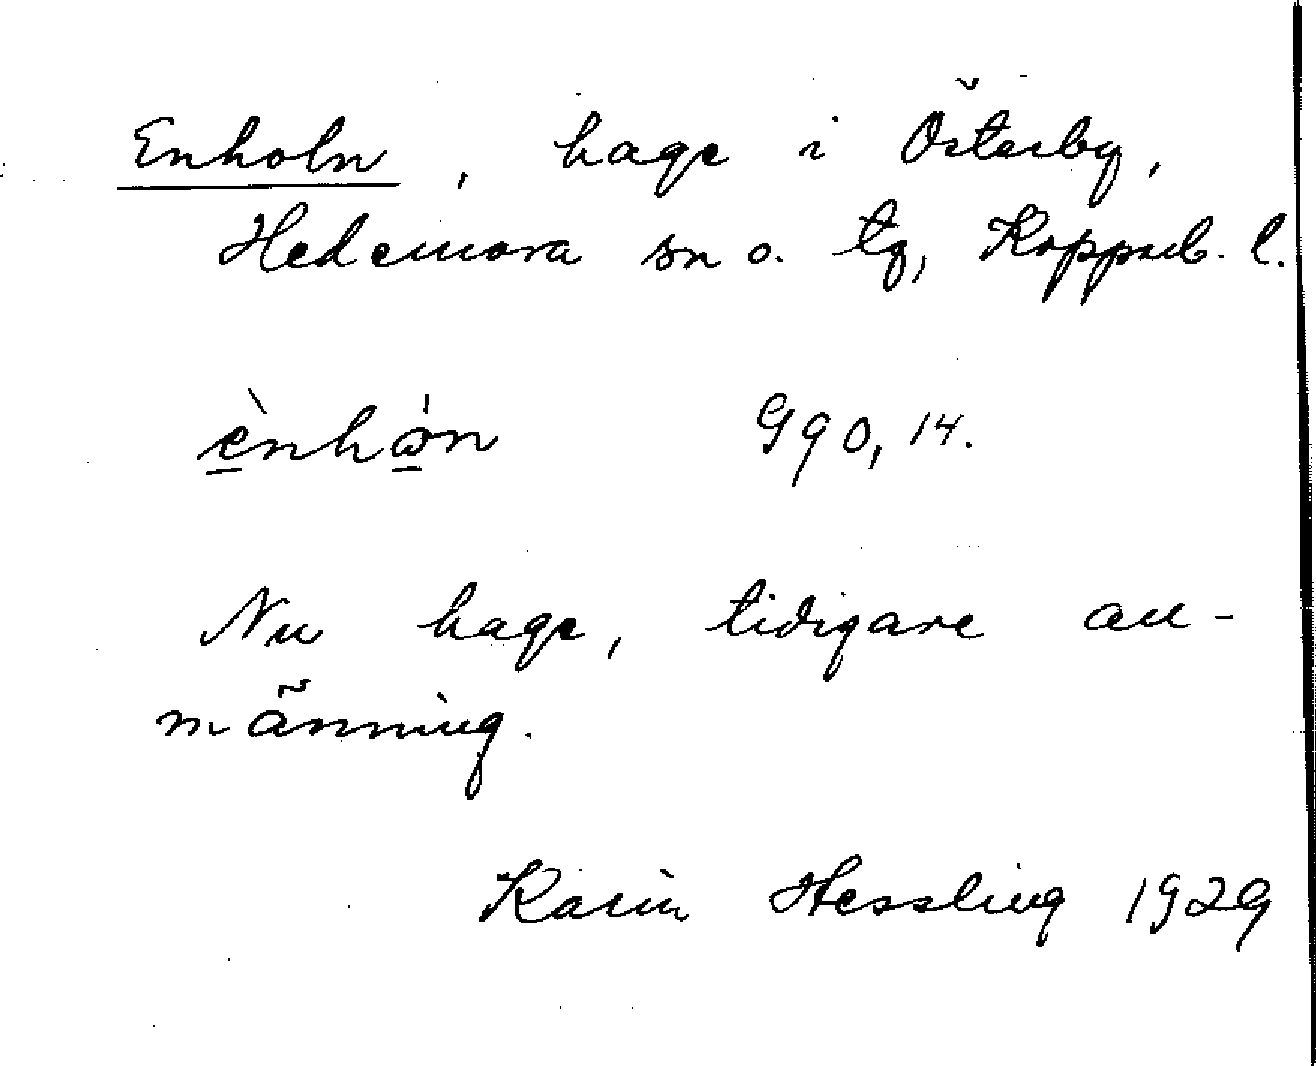 Enholn, hage i Österby,
Hedemora sn o. tg, Kopparb. l.
ènhòn 990, 14.
Nu hage, tidigare all-
männing.
Karin Hessling 1929